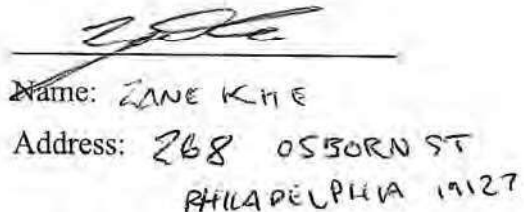 Name: ZANE KITE
Address: 268 OSBORN ST
PHILADELPHIA 19127